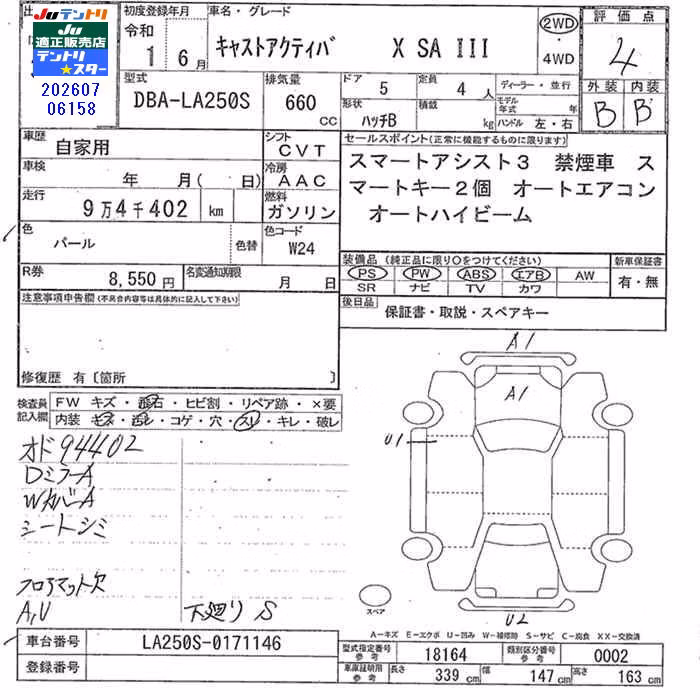 Juテントリ
Ju
適正販売店
テントリ
スター
202607
06158
初度登録年月
令和
1 6月
車名・グレード
キャストアクティバ X SA III
2WD
・
4WD
評価点
4
外装 内装
B B
型式
DBA-LA250S
排気量
660 CC
ドア 5
形状 ハッチB
定員 4 人
積載 kg
ディーラー・並行
モデル年式 年
ハンドル 左・右
車歴
自家用
シフト
CVT
車検
年 月( 日)
冷房
AAC
走行
9万4千402 km
燃料
ガソリン
色
パール
色替
色コード
W24
R券
8,550円
名変通知期限
月 日
セールスポイント(正常に機能するものに限ります)
スマートアシスト3 禁煙車 ス
マートキー2個 オートエアコン
オートハイビーム
装備品(純正品に限り○をつけてください)
PS PW ABS エアB AW
SR ナビ TV カワ
新車保証書
有・無
後日品
保証書・取説・スペアキー
注意事項申告欄(不具合内容等は具体的に記入して下さい)
修復歴 有〔箇所 〕
検査員
記入欄
FW キズ・飛石・ヒビ割・リペア跡・×要
内装・キズ・汚レ・コゲ・穴・スレ・キレ・破レ
オド 94402
DミラーA
WカバーA
シートシミ
フロアマット欠
A,U 下廻り S
A1
A1
U1
U2
スペア
A-キズ E-エクボ U-凹み W-補修跡 S-サビ C-腐食 XX-交換済
車台番号
LA250S-0171146
登録番号
型式指定番号
参考
18164
類別区分番号
参考
0002
車庫証明用
参考
長さ 339 cm
幅 147 cm
高さ 163 cm